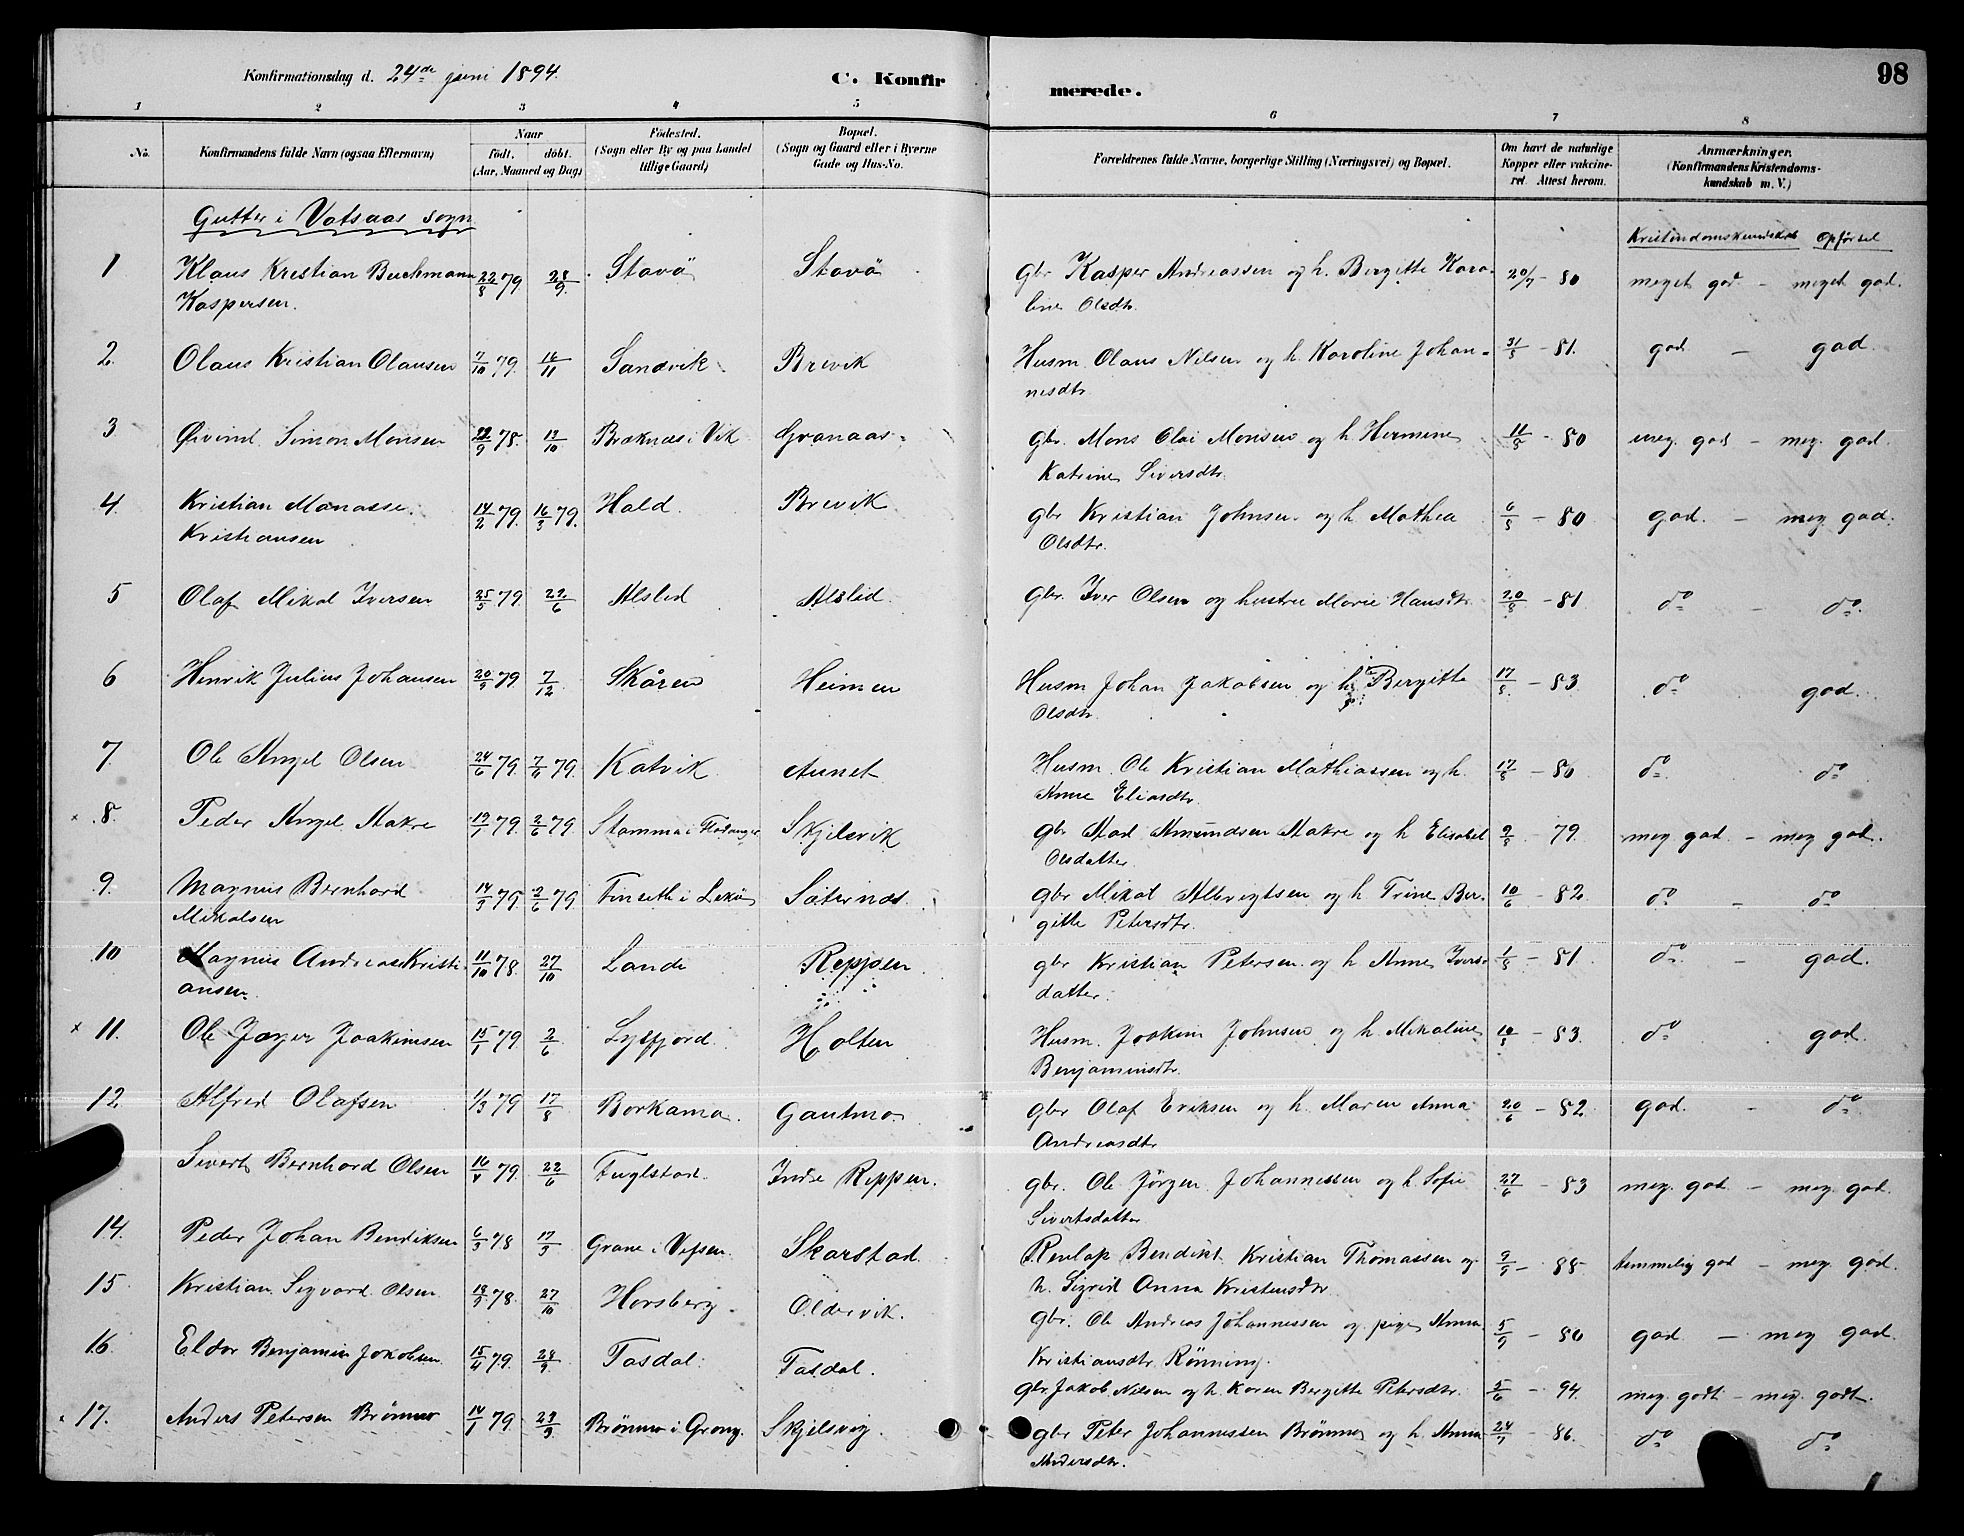 Konfirmationsdag d. 24de juni 1894. C. Konfirmerede. 98
1 2 3 4 5 6 7 8
No. Konfirmandens fulde Navn (ogsaa Efternavn) Naar født. døbt. (Aar, Maaned og Dag) Födested. (Sogn eller By og paa Landet tillige Gaard) Bopæl. (Sogn og Gaard eller i Byerne Gade og Hus-No. Forældrenes fulde Navne, borgerlige Stilling (Næringsvei) og Bopæl. Om havt de naturlige Kopper eller vakcineret. Attest herom. Anmærkninger. (Konfirmandens Kristendomskundskab m. V.)
Gutter i Vatsaas sogn. Kristendomskundskab Opførsel
1 Klaus Kristian Buchmann 22/8 79. 28/9 Stavö Stavö Gbr Kasper Andreassen og h. Bergitte Karo- 20/7 - 80 meget god - meget god.
Kaspersen. line Olsdtr.
2. Olaus Kristian Olausen 7/10 79. 16/11 Sandvik Brevik Husm Olaus Nilsen og h. Karoline Johan- 31/8 - 81. god - god.
nesdtr.
3 Øivind Simon Monsen 22/9 78. 13/10 Braknæs i Vik Granaas Gbr. Mons Olai Monsen og h. Hermine 11/8 - 80 meg. god - meg. god.
Katrine Siversdtr.
4 Kristian Manasse 14/2 79. 16/3 79. Hald. Brevik gbr Kristian Johnsen og h. Mathea 6/8 - 80 god. - meg god.
Kristiansen Olsdtr.
5 Olaf Mikal Iversen 25/5 79. 22/6 Alslid Alslid. Gbr. Iver Olsen og hustru Marie Hansdtr. 20/8 - 81 do - do.
6 Henrik Julius Johansen 20/9 79 7/12 Skåren Heimen Husm Johan Jakobsen og h. Bergitte 17/8 - 83 do god.
Olsdtr.
7 Ole Angel Olsen 24/6 79. 7/9 79. Katvik Aunet Husm. Ole Kristian Mathiassen og h. 17/8 - 80 do do
Anne Eliasdtr.
x 8. Peder Angel Aakre 19/1 79. 2/6 79. Stamma i Flatanger Skjelsvik gbr Aad Amundsen Aakre og h Elisabet 9/8 - 79. meg god - meg god.
Olsdatter.
9. Magnus Bernhard 14/3 79 2/6 79 Finseth i Lekø Säternæs gbr Mikal Albrigtsen og h Trine Ber- 10/6 - 82. do - do
Mikalsen gitte Petersdtr.
10 Magnus Andreas Kristi- 11/10 78. 27/10 Lande Reppen gbr Kristian Petersen og h Anne Ivers- 1/8 - 81 do - god.
ansen. datter.
x 11. Ole Jæger Joakimsen 15/1 79. 2/6 Lysfjord. Holten Husm. Joakim Johnsen og h. Mikaline 10/8 - 83. do god.
Benjaminsdtr.
12. Alfred Olafsen 1/3 79 17/8 Borkamo Gautmo. gbr Olaf Eriksen og h. Maren Anna 20/6 - 82 god. - do
Andreasdtr.
Sivert Bernhard Olsen 16/ 79. 22/6 Fuglstad. Indre Reppen. gbr. Ole Jörgen Johannessen og h. Sofie 27/6 - 83 meg. god - meg. god.
Sivertsdatter
14. Peder Johan Bendiksen 6/3 78 17/3 Grane i Vefsen. Skarstad. Renlap Bendikt Kristian Thomassen og 9/9 - 88 temmelig god - meg. god.
h. Sigrid Anna Kristensdtr.
15 Kristian Sigvard Olsen 18/9 78. 27/10 Horsberg. Oldervik. gbr. Ole Andreas Johannessen og pige Anna 5/9 - 80 god - meg god.
Kristiansdtr Rönning.
16. Eldor Benjamin Jakobsen 15/4 79. 28/9 Tasdal. Tasdal. gbr. Jakob Nilsen og h. Karen Bergitte Petersdtr. 5/6 - 94. meg. godt - meg. godt.
x 17. Anders Petersen Brömmo 14/1 79 23/3 Brömmo i Grong. Skjelsvig. gbr Peter Johannessen Brömmo og h. Anna 24/9 - 86. do do
Andersdtr.